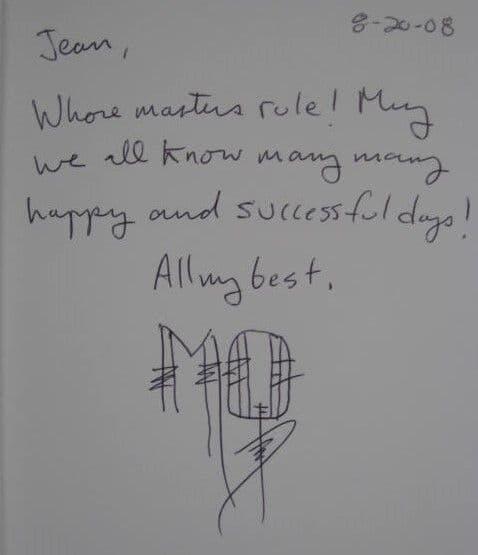 8-20-08
Jean,
Whore masters rule! May
we all know many many
happy and successful days!
All my best,
MO